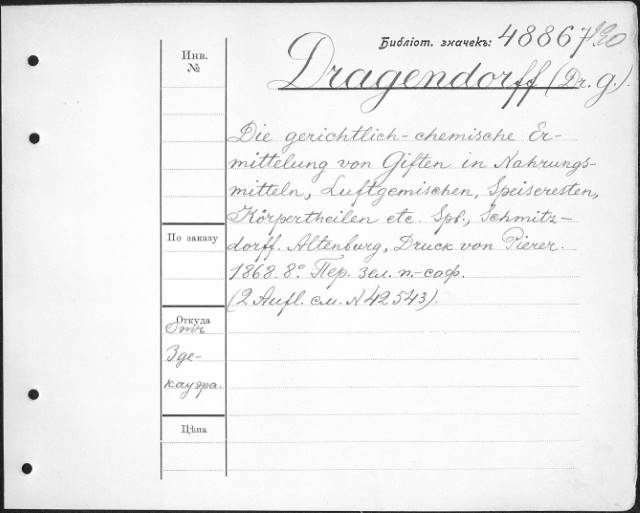 Библіот. значекъ: 48867
Dragendorff (Dr. G.).
Инв.
№
Die gerichtlich-chemische Er-
mittelung von Giften in Nahrungs-
mitteln, Luftgemischen, Speiseresten,
Körpertheilen etc. Spb., Schmitz-
dorff. Altenburg, Druck von Pierer.
1868. 8º. Пер. зел. п.-саф.
(2 Aufl. см. N 42543).
По заказу
Откуда
Отъ
Зде-
кауэра.
Цѣна